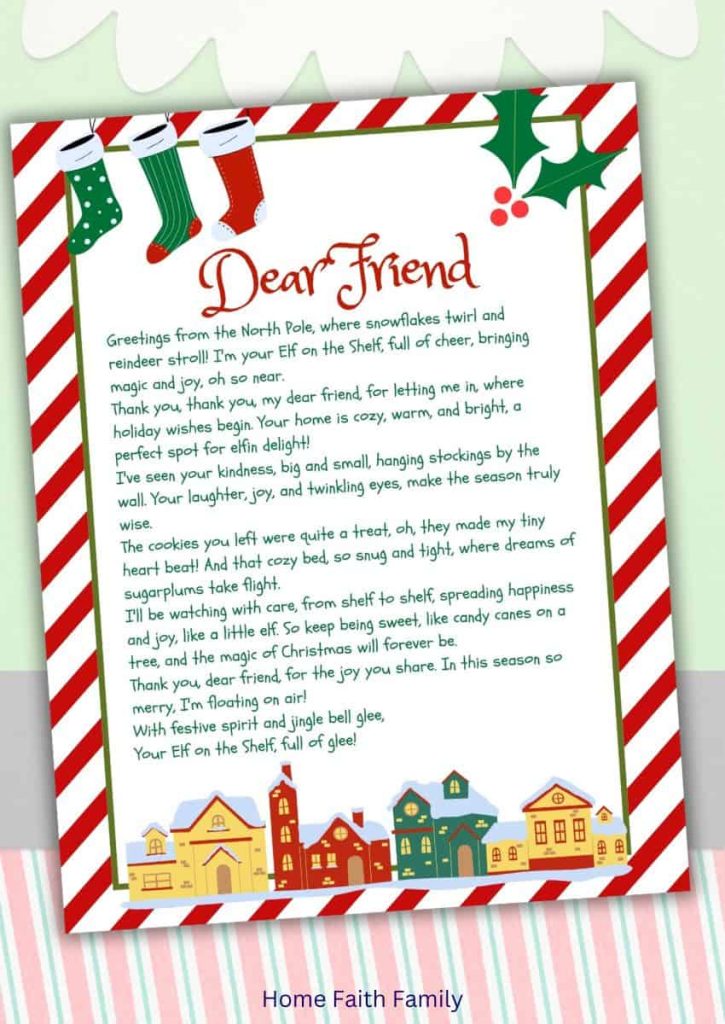 Dear Friend
Greetings from the North Pole, where snowflakes twirl and
reindeer stroll! I'm your Elf on the Shelf, full of cheer, bringing
magic and joy, oh so near.
Thank you, thank you, my dear friend, for letting me in, where
holiday wishes begin. Your home is cozy, warm, and bright, a
perfect spot for elfin delight!
I've seen your kindness, big and small, hanging stockings by the
wall. Your laughter, joy, and twinkling eyes, make the season truly
wise.
The cookies you left were quite a treat, oh, they made my tiny
heart beat! And that cozy bed, so snug and tight, where dreams of
sugarplums take flight.
I'll be watching with care, from shelf to shelf, spreading happiness
and joy, like a little elf. So keep being sweet, like candy canes on a
tree, and the magic of Christmas will forever be.
Thank you, dear friend, for the joy you share. In this season so
merry, I'm floating on air!
With festive spirit and jingle bell glee,
Your Elf on the Shelf, full of glee!
Home Faith Family